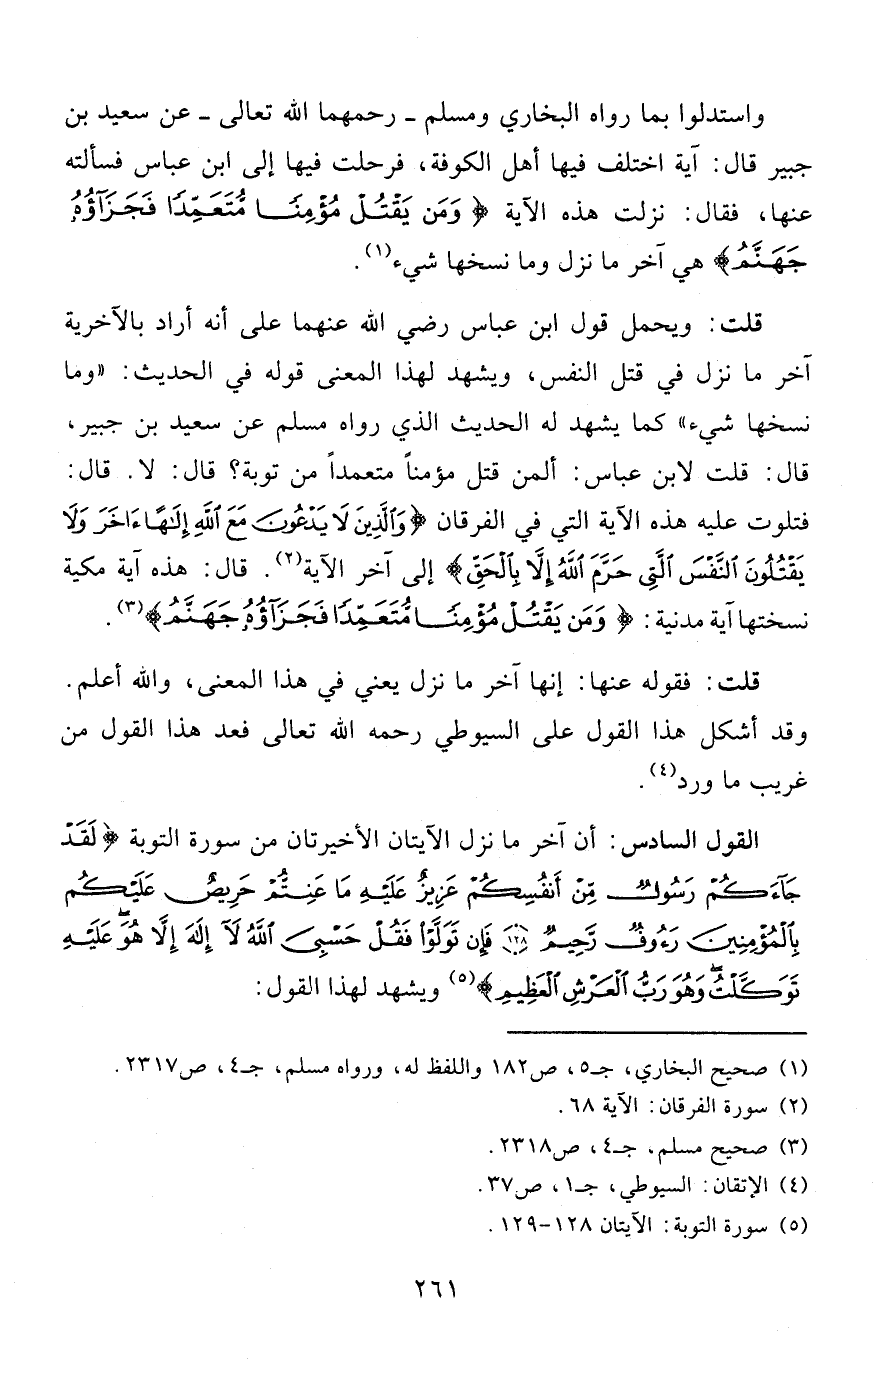 واستدلوا بما رواه البخاري ومسلم ـ رحمهما الله تعالى ـ عن سعيد بن
جبير قال: آية اختلف فيها أهل الكوفة، فرحلت فيها إلى ابن عباس فسألته
عنها، فقال: نزلت هذه الآية ﴿ وَمَن يَقْتُلْ مُؤْمِنًا مُّتَعَمِّدًا فَجَزَآؤُهُۥ
جَهَنَّمُ﴾ هي آخر ما نزل وما نسخها شيء(١).
قلت: ويحمل قول ابن عباس رضي الله عنهما على أنه أراد بالآخرية
آخر ما نزل في قتل النفس، ويشهد لهذا المعنى قوله في الحديث: «وما
نسخها شيء» كما يشهد له الحديث الذي رواه مسلم عن سعيد بن جبير،
قال: قلت لابن عباس: ألمن قتل مؤمناً متعمداً من توبة؟ قال: لا. قال:
فتلوت عليه هذه الآية التي في الفرقان ﴿وَٱلَّذِينَ لَا يَدْعُونَ مَعَ ٱللَّهِ إِلَٰهًا ءَاخَرَ وَلَا
يَقْتُلُونَ ٱلنَّفْسَ ٱلَّتِى حَرَّمَ ٱللَّهُ إِلَّا بِٱلْحَقِّ﴾ إلى آخر الآية(٢). قال: هذه آية مكية
نسختها آية مدنية: ﴿ وَمَن يَقْتُلْ مُؤْمِنًا مُّتَعَمِّدًا فَجَزَآؤُهُۥ جَهَنَّمُ﴾(٣).
قلت: فقوله عنها: إنها آخر ما نزل يعني في هذا المعنى، والله أعلم.
وقد أشكل هذا القول على السيوطي رحمه الله تعالى فعد هذا القول من
غريب ما ورد(٤).
القول السادس: أن آخر ما نزل الآيتان الأخيرتان من سورة التوبة ﴿لَقَدْ
جَآءَكُمْ رَسُولٌ مِّنْ أَنفُسِكُمْ عَزِيزٌ عَلَيْهِ مَا عَنِتُّمْ حَرِيصٌ عَلَيْكُم
بِٱلْمُؤْمِنِينَ رَءُوفٌ رَّحِيمٌ ١٢٨ فَإِن تَوَلَّوْا۟ فَقُلْ حَسْبِىَ ٱللَّهُ لَآ إِلَٰهَ إِلَّا هُوَ ۖ عَلَيْهِ
تَوَكَّلْتُ ۖ وَهُوَ رَبُّ ٱلْعَرْشِ ٱلْعَظِيمِ﴾(٥) ويشهد لهذا القول:
(١) صحيح البخاري، جـ٥، ص١٨٢ واللفظ له، ورواه مسلم، جـ٤، ص٢٣١٧.
(٢) سورة الفرقان: الآية ٦٨.
(٣) صحيح مسلم، جـ٤، ص٢٣١٨.
(٤) الإتقان: السيوطي، جـ١، ص٣٧.
(٥) سورة التوبة: الآيتان ١٢٨-١٢٩.
٢٦١